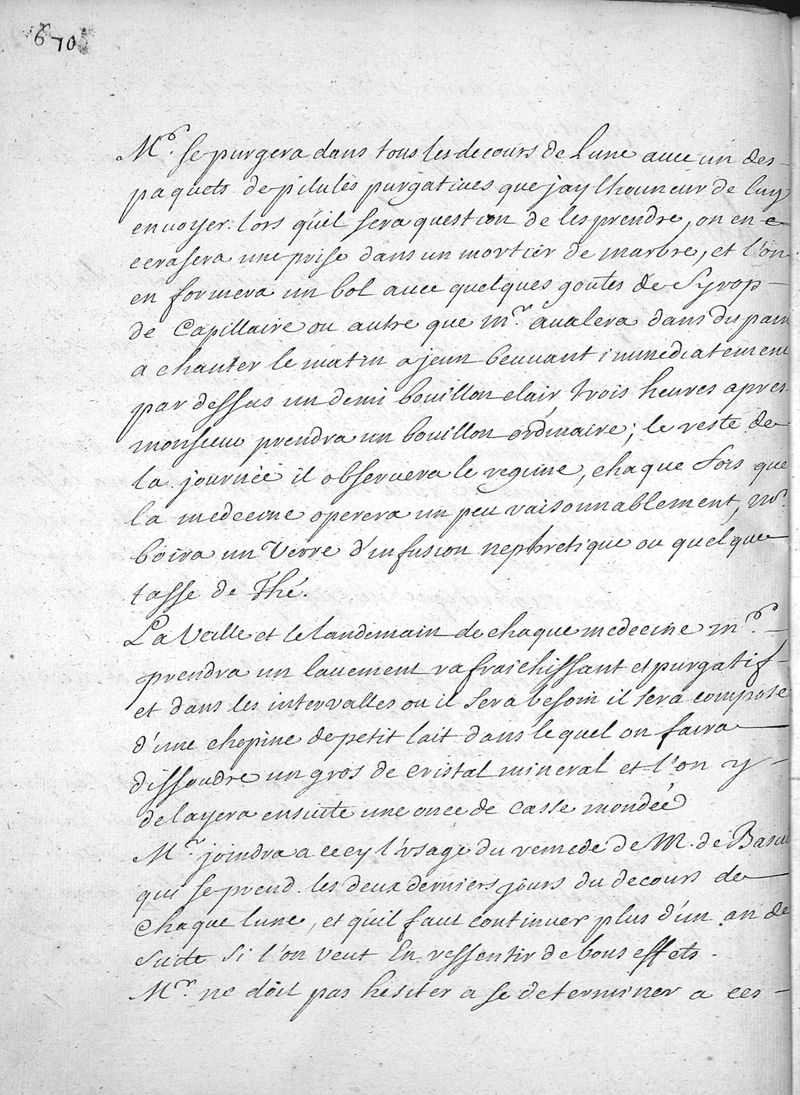 6 70
Mr. se purgera dans tous les decours de Lune avec un des-
paquets de pilules purgatives que jay lhonneur de luy
envoyer. lors quil sera question de les prendre, on en e
ecrasera une prise dans un mortier de marbre, et l'on
en formera un bol avec quelques goutes de Syrop-
de Capillaire ou autre que mr. avalera dans du pain
a chanter le matin a jeun beuvant immediatement
par dessus un demi bouillon clair trois heures apres
monsieur prendra un bouillon ordinaire; le reste de
la journée il observera le regime, chaque fois que
la medecine operera un peu raisonnablement, mr.
boira un Verre d'infusion nephretique ou quelque
tasse de Thé.
La Veille et le landemain de chaque medecine mr. -
prendra un lavement rafraichissant et purgatif-
et dans les intervalles ou il sera besoin il sera composé
d'une chopine de petit lait dans lequel on faira
dissoudre un gros de cristal mineral et l'on y-
delayera ensuite une once de casse mondée
Mr. joindra a cecy l'usage du remede de M. de
qui se prend les deux derniers jours du decours de
chaque lune, et quil faut continuer plus d'un an de
suite si l'on veut En ressentir de bons effets.
Mr. ne doit pas hesiter a se determiner a ces-